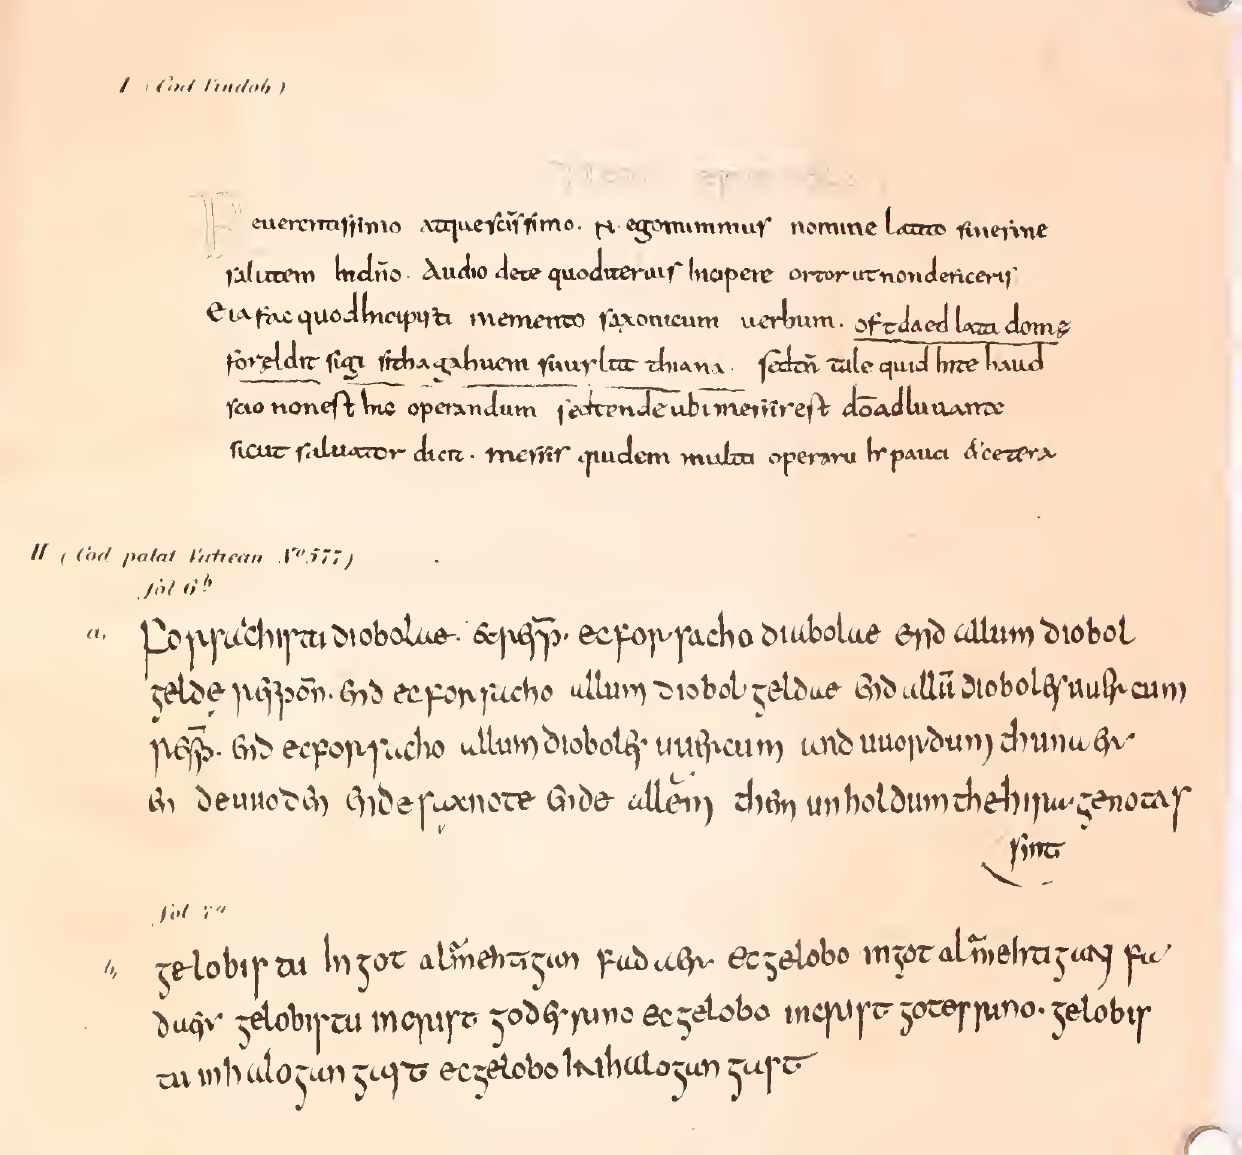 I (Cod Vindob)
Reuerentissimo atque sc̄issimo. N. ego minimus nomine lato sine rine
salutem In dn̄o. Audio de te quod iter uis Incipere ortor ut non deficeris
Eia fac quod Incipisti memento saxonicum uerbum. oft daed lata domę
foreldit sigi sitha gahuem suuyltit thi ana. sed tn̄ tale quid In te haud
scio non est hic operandum sed tende ubi messis est do adIuuante
sicut saluator dicit. messis quidem multa operarii u͞ pauci & cetera
II (Cod palat Vatican No 577)
fol 6b
a. Forsachistu diobolae. & resp̄. ec forsacho diabolae end allum diobol
gelde respon̄. end ec forsacho allum diobolgeldae end allū dioboles uuercum
resp̄. end ec forsacho allum dioboles uuercum and uuordum thunaer
en de uuoden ende saxnote ende allēm them unholdum the hira genotas
sint
fol 7a
b, gelobistu In got alamehtigan fadaer ec gelobo in got alamehtigan fa
daer gelobistu in crist godes suno ec gelobo in crist gotes suno. gelobis
tu in halogan gast ec gelobo In halogan gast